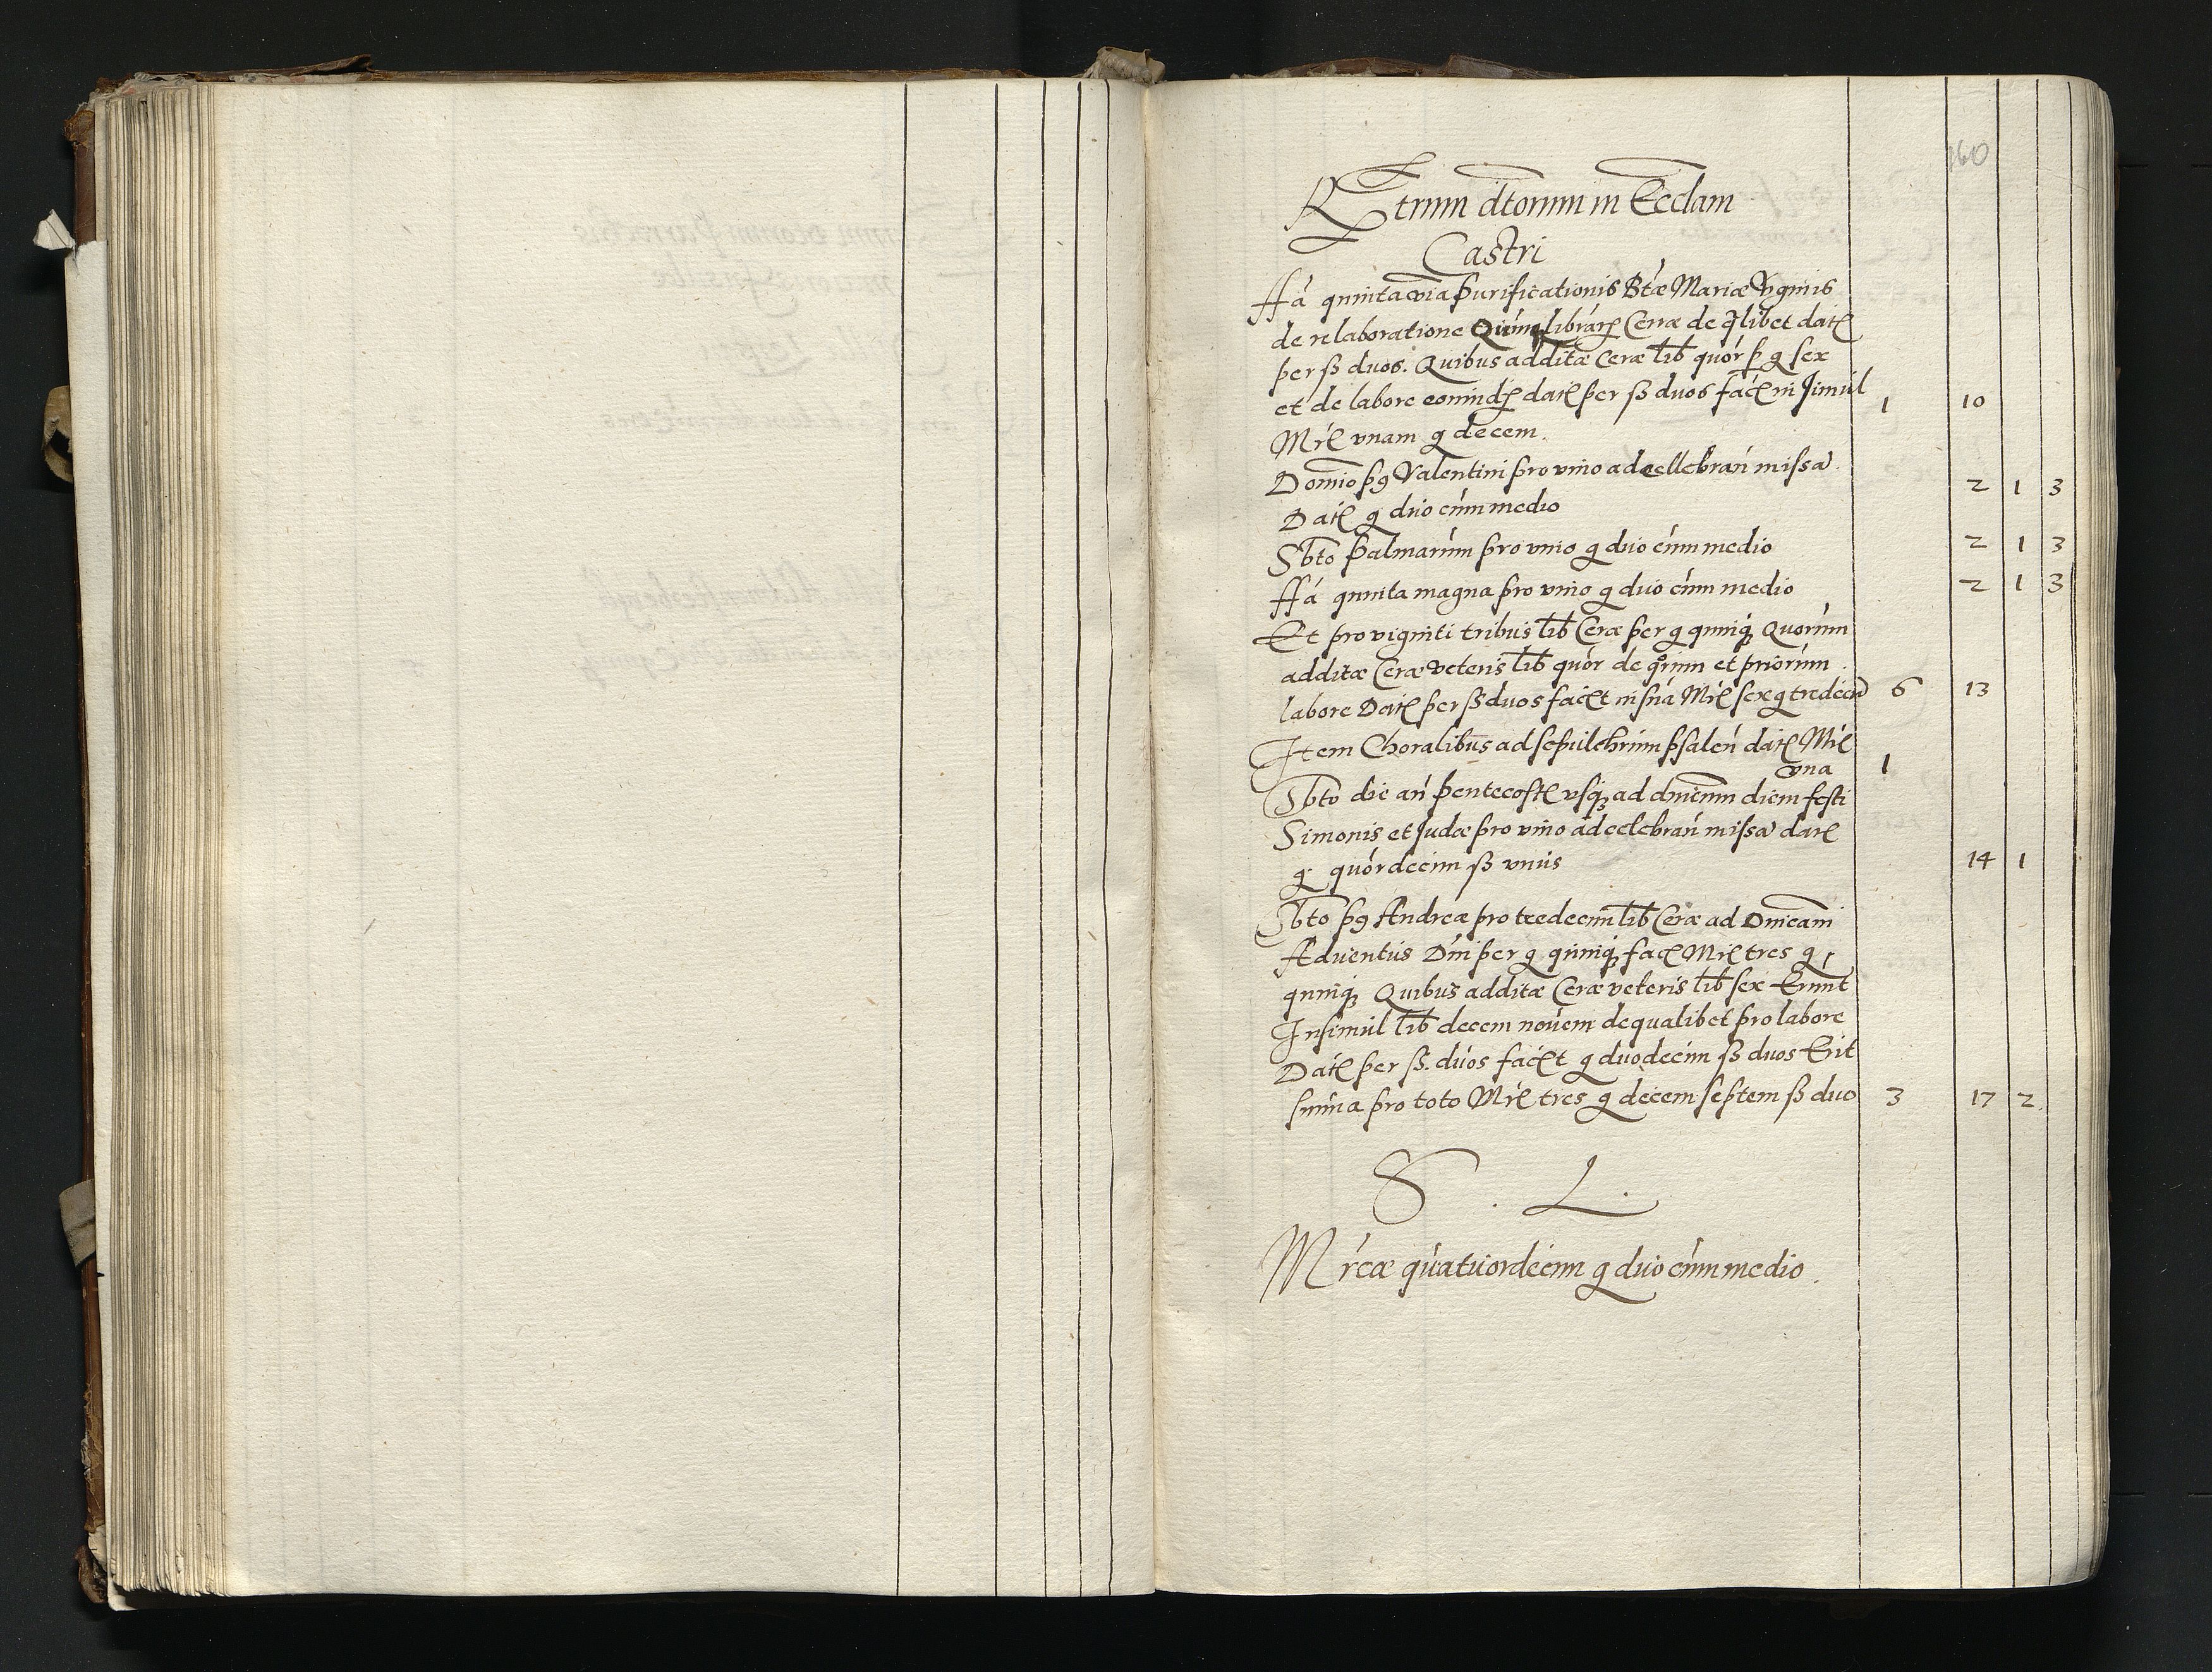 160
Rtrum dtorum in Ecclam
Castri
ffa quinta via Purificationis Btæ Mariæ Vginis
de relaboratione Quinq librar Ceræ de qlibet dat
per ſß duos. Quibus additæ Ceræ lib quor p g sex
et de labore eorund dat per ſß duos fac in simul 1 10
Mr unam g decem.
Domio pg Valentini pro vino ad cellebran missa
Dat g duo cum medio 2 1 3
Sbto Palmarum pro vino g duo cum medio 2 1 3
ffa quinta magna pro vino g duo cum medio 2 1 3
Et pro viginti tribus lib Ceræ per g quinq Quorum
additæ Ceræ veteris lib quor de qrum et priorum
labore Dat per ſß duos facit in sua Mr sex g tredeci 6 13
Item Choralibus ad sepulchrum psalen dat Mr
vna 1
Sbto die an Pentecost usq ad dnicum diem festi
Simonis et Judæ pro vino ad celebran missa dat
g quordecim ſß unus 14 1
Sbto pg Andreæ pro tredecim lib Ceræ ad Dnicam
Adventus Dni per g quinq fac Mr tres g
quinq Quibus additæ Ceræ veteris lib sex Erunt
Insimul lib decem novem de qualibet pro labore
Dat per ſß. duos facit g duodecim ſß duos Erit
suma pro toto Mr tres g decem septem ſß duo 3 17 2
S. L.
Mrcæ quatuordecim g duo cum medio.